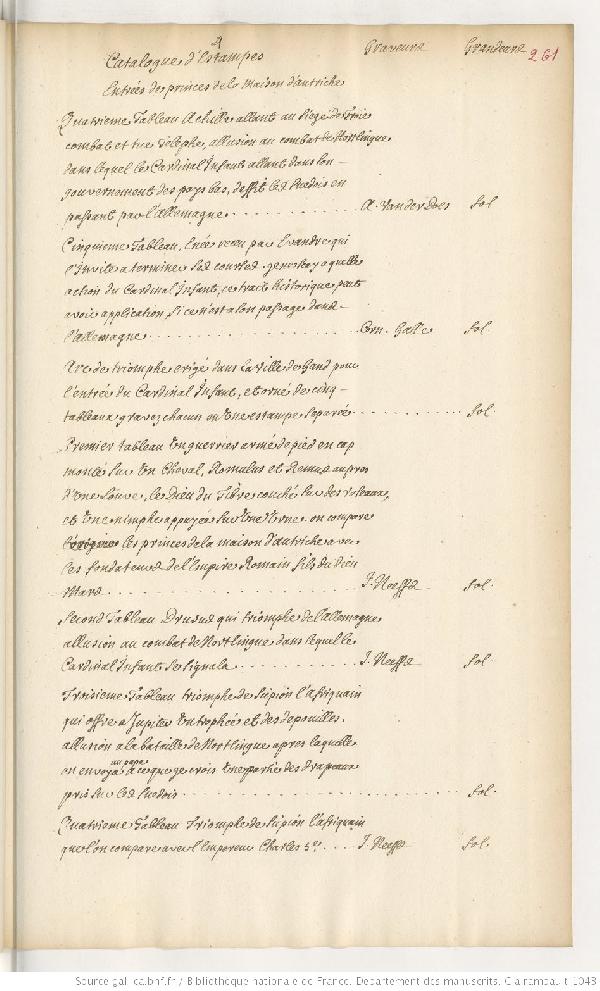 4
Catalogue d'Estampes Graveurs Grandeurs 261
Entrées des princes de la Maison d'autriche
Quatrieme Tableau Achille allant au siege de Troie
combat et tue Telephe, allusion au combat de Nortlingue
dans lequel le Cardinal Infant allant dans son
gouvernement des pays bas, deffit les Suedois en
passant par l'allemagne . . . . . . . . . . A. Vander Does fol
Cinquieme Tableau, Enée receu par Evandre qui
l'Invite a terminer ses courses. je ne sçay a quelle
action du Cardinal Infant, ce trait historique peut
avoir application, si ce n'est a son passage dans
l'allemagne . . . . . . . . . . Corn. Galle fol.
Arc de triomphe erigé dans la ville de Gand pour
l'entrée du Cardinal Infant, et orné de cinq
tableaux gravez chacun en Une estampe separée . . . . . . . . . . fol.
Premier tableau Un guerrier armé de pied en cap
monté sur Un Cheval, Romulus et Remus aupres
d'Une Louve, le Dieu du Tibre couché sur des roseaux,
et Une nimphe appuyée sur Une Urne. on compare
les princes de la maison d'autriche avec
les fondateurs de l'Empire Romain fils du dieu
Mars . . . . . . . . . . J. Neeffs fol.
Second Tableau Drusus qui triomphe de l'allemagne
allusion au combat de Nortlingue dans lequel le
Cardinal Infant se signala . . . . . . . . . . J. Neeffs fol.
Troisieme Tableau triomphe de Scipion l'affriquain
qui offre a Jupiter Un trophée et des depouilles.
allusion a la bataille de Nortlingue apres laquelle
on envoya au pape a ce que je crois Une partie des drapeaux
pris sur les Suedois . . . . . . . . . . fol.
Quatrieme Tableau Triomphe de Scipion l'affriquain
que l'on compare avec l'Empereur Charles 5e. . . . J. Neeffs fol.
Source gallica.bnf.fr / Bibliothèque nationale de France. Département des manuscrits. Clairambault 1043